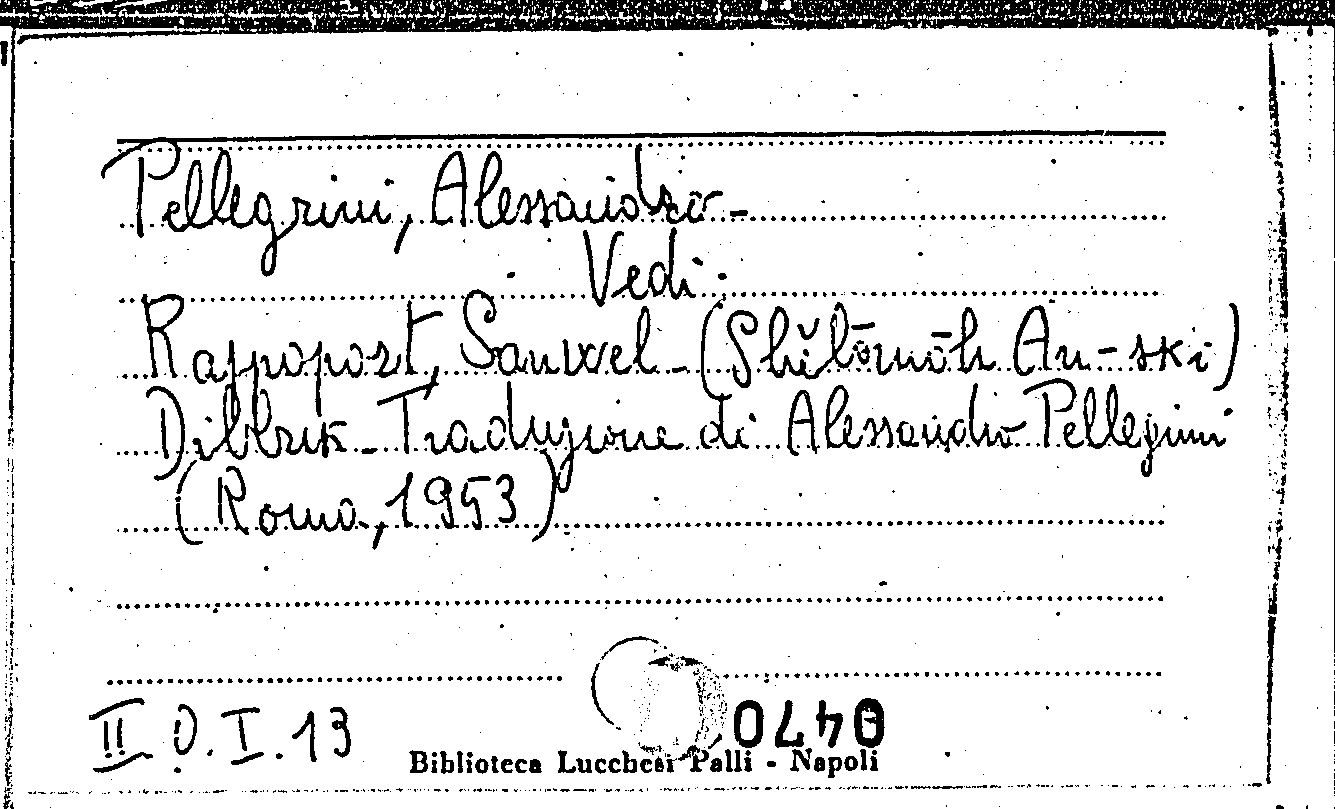 Pellegrini, Alessandro -
Vedi:
Rappoport, Samuel - (Shĕlōmōh An-ski)
Dibbuk - Traduzione di Alessandro Pellegrini
(Roma, 1953)
II O. I. 13
Biblioteca Lucchesi Palli - Napoli